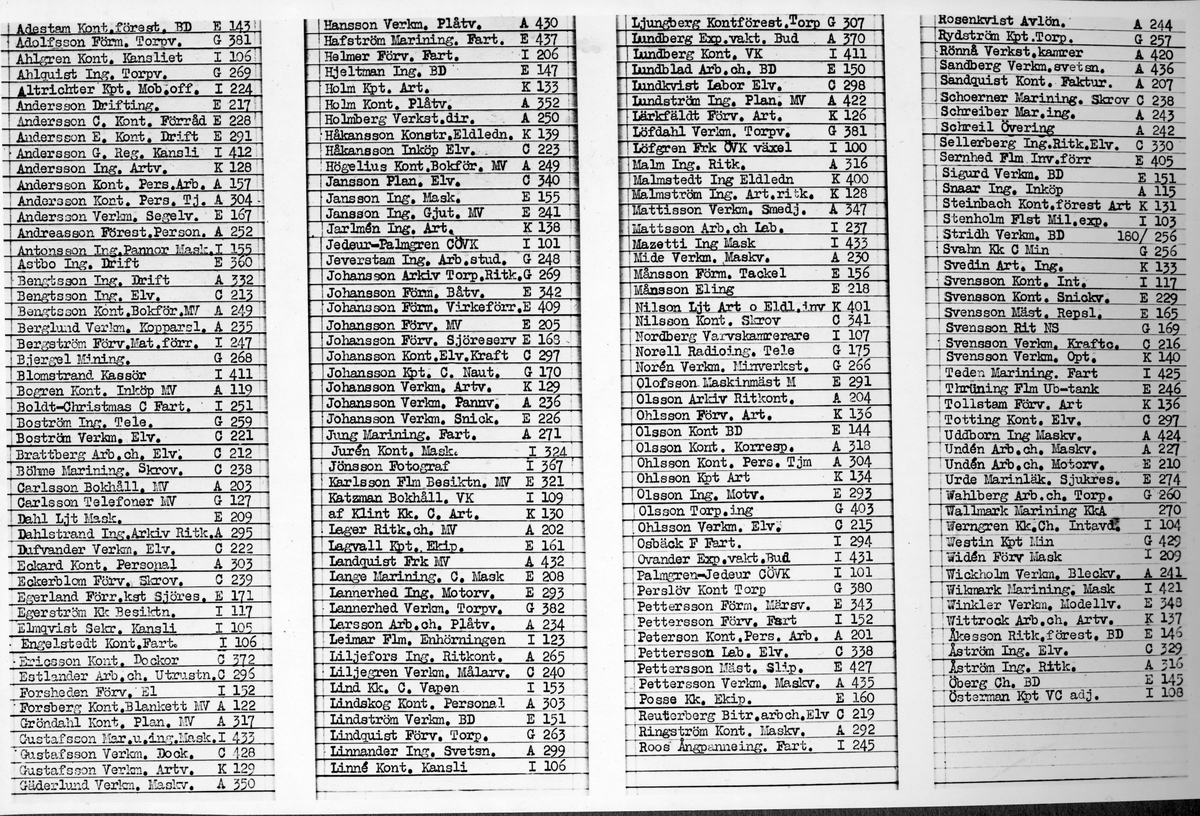 Adestam Kont.förest. BD E 143
Adolfsson Förm. Torpv. G 381
Ahlgren Kont. Kansliet I 106
Ahlquist Ing. Torpv. G 269
Altrichter Kpt. Mob.off. I 224
Andersson Drifting. E 217
Andersson C. Kont. Förråd E 228
Andersson E. Kont. Drift E 291
Andersson G. Reg. Kansli I 412
Andersson Ing. Artv. K 128
Andersson Kont. Pers.Arb. A 157
Andersson Kont. Pers. Tj. A 304
Andersson Verkm. Segelv. E 167
Andreasson Förest.Person. A 252
Antonsson Ing.Pannor Mask. I 155
Astbo Ing. Drift E 360
Bengtsson Ing. Drift A 332
Bengtsson Ing. Elv. C 213
Bengtsson Kont.Bokför.MV A 249
Berglund Verkm. Kopparsl. A 235
Bergström Förv.Mat.förr. I 247
Bjergel Mining. G 268
Blomstrand Kassör I 411
Bogren Kont. Inköp MV A 119
Boldt-Christmas C Fart. I 251
Boström Ing. Tele. G 259
Boström Verkm. Elv. C 221
Brattberg Arb.ch. Elv. C 212
Böhme Marining. Skrov. C 238
Carlsson Bokhåll. MV A 203
Carlsson Telefoner MV G 127
Dahl Ljt Mask. E 209
Dahlstrand Ing.Arkiv Ritk.A 295
Dufvander Verkm. Elv. C 222
Eckard Kont. Personal A 303
Eckerblom Förv. Skrov. C 239
Egerland Förr.kst Sjöres. E 171
Egerström Kk Besiktn. I 117
Elmqvist Sekr. Kansli I 105
Engelstedt Kont.Fart. I 106
Ericsson Kont. Dockor C 372
Estlander Arb.ch. Utrustn.C 296
Forsheden Förv. El I 152
Forsberg Kont.Blankett MV A 122
Gröndahl Kont. Plan. MV A 317
Gustafsson Mar.u.ing.Mask.I 433
Gustafsson Verkm. Dock. C 428
Gustafsson Verkm. Artv. K 129
Gäderlund Verkm. Maskv. A 350
Hansson Verkm. Plåtv. A 430
Hafström Marining. Fart. E 437
Helmer Förv. Fart. I 206
Hjeltman Ing. BD E 147
Holm Kpt. Art. K 133
Holm Kont. Plåtv. A 352
Holmberg Verkst.dir. A 250
Håkansson Konstr.Eldledn. K 139
Håkansson Inköp Elv. C 223
Högelius Kont.Bokför. MV A 249
Jansson Plan. Elv. C 340
Jansson Ing. Mask. E 155
Jansson Ing. Gjut. MV E 241
Jarlmén Ing. Art. K 138
Jedeur-Palmgren CÖVK I 101
Jeverstam Ing. Arb.stud. G 248
Johansson Arkiv Torp.Ritk.G 269
Johansson Förm. Båtv. E 342
Johansson Förm. Virkeförr.E 409
Johansson Förv. MV E 205
Johansson Förv. Sjöreserv E 168
Johansson Kont.Elv.Kraft C 297
Johansson Kpt. C. Naut. G 170
Johansson Verkm. Artv. K 129
Johansson Verkm. Pannv. A 236
Johansson Verkm. Snick. E 226
Jung Marining. Fart. A 271
Jurén Kont. Mask. I 324
Jönsson Fotograf I 367
Karlsson Flm Besiktn. MV E 321
Katzman Bokhåll. VK I 109
af Klint Kk. C. Art. K 130
Lager Ritk.ch. MV A 202
Lagvall Kpt. Ekip. E 161
Landquist Frk MV A 432
Lange Marining. C. Mask E 208
Lannerhed Ing. Motorv. E 293
Lannerhed Verkm. Torpv. G 382
Larsson Arb.ch. Plåtv. A 234
Leimar Flm. Enhörningen I 123
Liljefors Ing. Ritkont. A 265
Liljegren Verkm. Målarv. C 240
Lind Kk. C. Vapen I 153
Lindskog Kont. Personal A 303
Lindström Verkm. BD E 151
Lindquist Förv. Torp. G 263
Linnander Ing. Svetsn. A 299
Linné Kont. Kansli I 106
Ljungberg Kontförest.Torp G 307
Lundberg Exp.vakt. Bud A 370
Lundberg Kont. VK I 411
Lundblad Arb.ch. BD E 150
Lundkvist Labor Elv. C 298
Lundström Ing. Plan. MV A 422
Lärkfäldt Förv. Art. K 126
Löfdahl Verkm. Torpv. G 381
Löfgren Frk ÖVK växel I 100
Malm Ing. Ritk. A 316
Malmstedt Ing Eldledn K 400
Malmström Ing. Art.ritk. K 128
Mattisson Verkm. Smedj. A 347
Mattsson Arb.ch Lab. I 237
Mazetti Ing Mask I 433
Mide Verkm. Maskv. A 230
Månsson Förm. Tackel E 156
Månsson Eling E 218
Nilson Ljt Art o Eldl.inv K 401
Nilsson Kont. Skrov C 341
Nordberg Varvskamrerare I 107
Norell Radioing. Tele G 175
Norén Verkm. Minverkst. G 266
Olofsson Maskinmäst M E 291
Olsson Arkiv Ritkont. A 204
Ohlsson Förv. Art. K 136
Olsson Kont BD E 144
Olsson Kont. Korresp. A 318
Ohlsson Kont. Pers. Tjm A 304
Ohlsson Kpt Art K 134
Olsson Ing. Motv. E 293
Olsson Torp.ing G 403
Ohlsson Verkm. Elv. C 215
Osbäck F Fart. I 294
Ovander Exp.vakt.Bud I 431
Palmgren-Jedeur CÖVK I 101
Perslöv Kont Torp G 380
Pettersson Förm. Märsv. E 343
Pettersson Förv. Fart I 152
Peterson Kont.Pers. Arb. A 201
Pettersson Lab. Elv. C 338
Pettersson Mäst. Slip. E 427
Pettersson Verkm. Maskv. A 435
Posse Kk. Ekip. E 160
Reuterberg Bitr.arbch.Elv C 219
Ringström Kont. Maskv. A 292
Roos Ångpanneing. Fart. I 245
Rosenkvist Avlön. A 244
Rydström Kpt.Torp. G 257
Rönnå Verkst.kamrer A 420
Sandberg Verkm.svetsn. A 436
Sandquist Kont. Faktur. A 207
Schoerner Marining. Skrov C 238
Schreiber Mar.ing. A 243
Schreil Övering A 242
Sellerberg Ing.Ritk.Elv. C 330
Sernhed Flm Inv.förr E 405
Sigurd Verkm. BD E 151
Snaar Ing. Inköp A 115
Steinbach Kont.förest Art K 131
Stenholm Flst Mil.exp. I 103
Stridh Verkm. BD 180/ 256
Svahn Kk C Min G 256
Svedin Art. Ing. K 133
Svensson Kont. Int. I 117
Svensson Kont. Snickv. E 229
Svensson Mäst. Repsl. E 165
Svensson Rit NS G 169
Svensson Verkm. Kraftc. C 216
Svensson Verkm. Opt. K 140
Teden Marining. Fart I 425
Thrüning Flm Ub-tank E 246
Tollstam Förv. Art K 136
Totting Kont. Elv. C 297
Uddborn Ing Maskv. A 424
Undén Arb.ch. Maskv. A 227
Undén Arb.ch. Motorv. E 210
Urde Marinläk. Sjukres. E 274
Wahlberg Arb.ch. Torp. G 260
Wallmark Marining KkA 270
Werngren Kk.Ch. Intavd. I 104
Westin Kpt Min G 429
Widén Förv Mask I 209
Wickholm Verkm. Bleckv. A 241
Wikmark Marining. Mask I 421
Winkler Verkm. Modellv. E 348
Wittrock Arb.ch. Artv. K 137
Åkesson Ritk.förest. BD E 146
Åström Ing. Elv. C 329
Åström Ing. Ritk. A 316
Öberg Ch. BD E 145
Österman Kpt VC adj. I 108